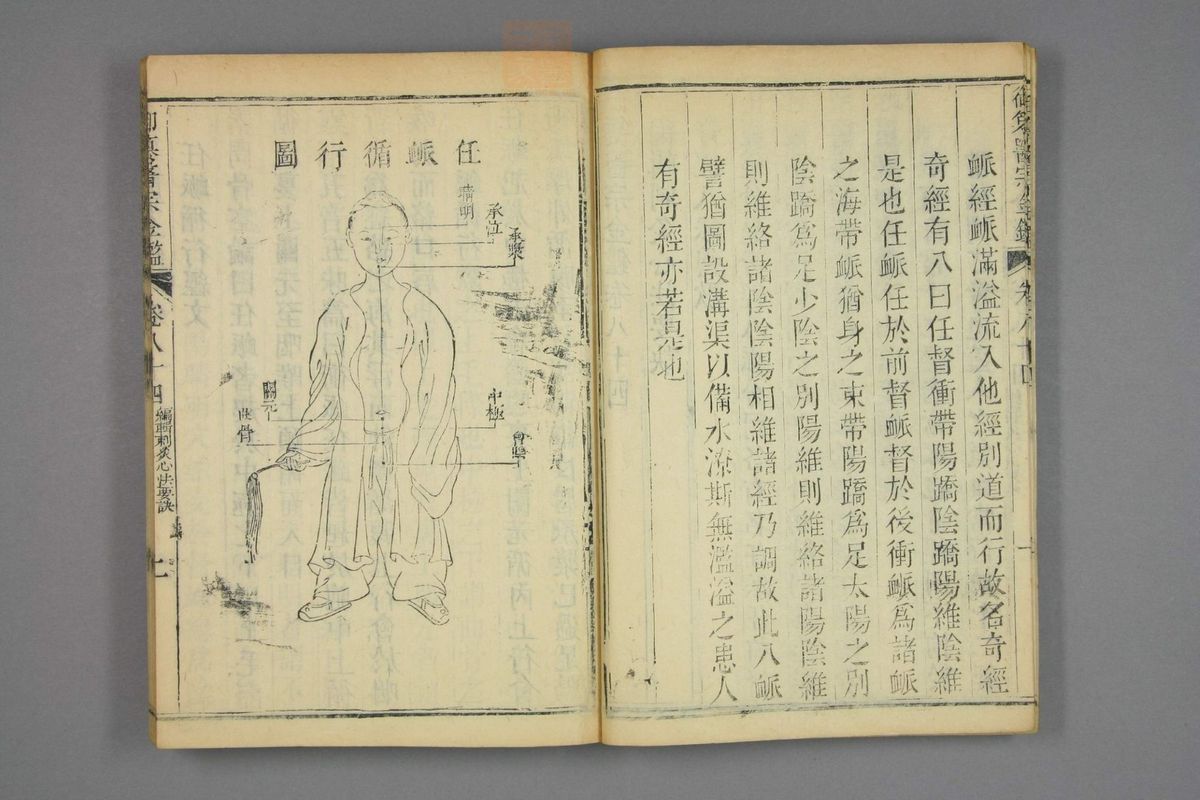 脈經脈滿溢流入他經別道而行故名奇經
奇經有八曰任督衝帶陽蹻陰蹻陽維陰維
是也任脈任於前督脈督於後衝脈爲諸脈
之海帶脈猶身之束帶陽蹻爲足太陽之別
陰蹻爲足少陰之別陽維則維絡諸陽陰維
則維絡諸陰陰陽相維諸經乃調故此八脈
譬猶圖設溝渠以備水潦斯無濫溢之患人
有奇經亦若是也
任脈循行圖
承漿
承泣
睛明
中極
會陰
關元
曲骨
醫宗金鑑
卷八十四
編輯刺灸心法要訣